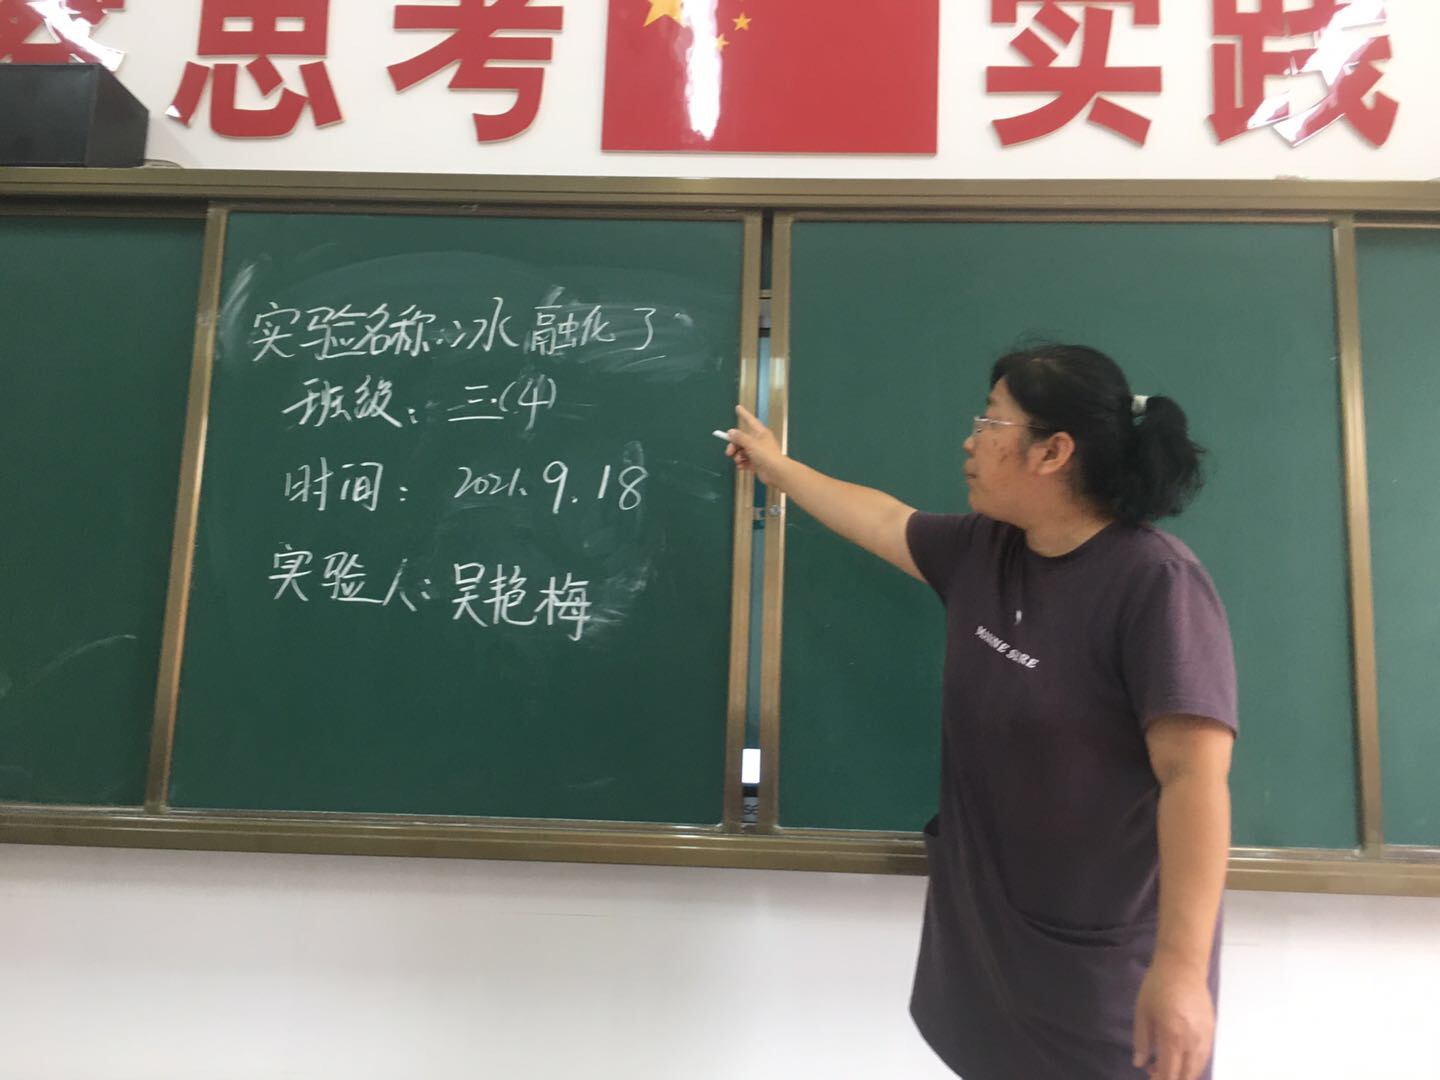 思考 实践
实验名称:冰融化了
班级:三.(4)
时间:2021.9.18
实验人:吴艳梅